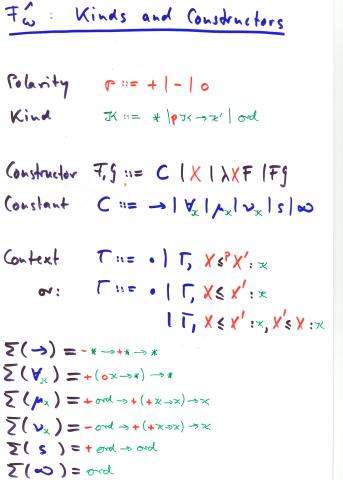 F̂ω : Kinds and Constructors
Polarity p ::= + | - | o
Kind κ ::= * | pκ → κ' | ord
Constructor F,G ::= C | X | λXF | FG
Constant C ::= → | ∀κ | μκ | νκ | s | ∞
Context Γ ::= • | Γ, X ≤ᵖ X' : κ
or: Γ ::= • | Γ, X ≤ X' : κ
| Γ, X ≤ X' : κ, X' ≤ X : κ
Σ(→) = -* → +* → *
Σ(∀κ) = +(oκ → *) → *
Σ(μκ) = +ord → +(+κ → κ) → κ
Σ(νκ) = -ord → +(+κ → κ) → κ
Σ(s) = +ord → ord
Σ(∞) = ord